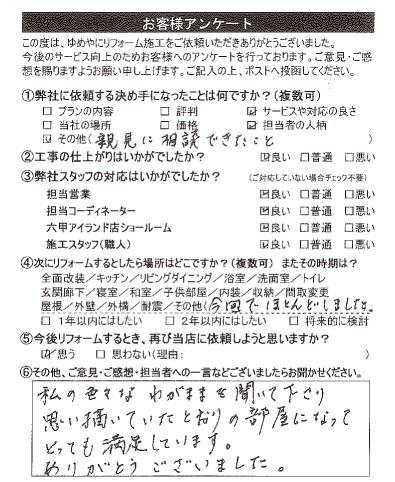 お客様アンケート
この度は、ゆめやにリフォーム施工をご依頼いただきありがとうございました。
今後のサービス向上のためお客様へのアンケートを行っております。ご意見・ご感
想を賜りますようお願い申し上げます。ご記入の上、ポストへ投函してください。
①弊社に依頼する決め手になったことは何ですか?(複数可)
□ プランの内容 □ 評判 ☑ サービスや対応の良さ
□ 当社の場所 □ 価格 ☑ 担当者の人柄
☑ その他( 親見に相談できたこと )
②工事の仕上がりはいかがでしたか? ☑良い □普通 □悪い
③弊社スタッフの対応はいかがでしたか? (ご対応していない場合チェック不要)
担当営業 ☑良い □普通 □悪い
担当コーディネーター ☑良い □普通 □悪い
六甲アイランド店ショールーム ☑良い □普通 □悪い
施工スタッフ(職人) ☑良い □普通 □悪い
④次にリフォームするとしたら場所はどこですか?(複数可) またその時期は?
全面改装/キッチン/リビングダイニング/浴室/洗面室/トイレ
玄関廊下/寝室/和室/子供部屋/内装/収納/間取変更
屋根/外壁/外構/耐震/その他(今回でほとんどしました。
□ 1年以内にはしたい □ 2年以内にはしたい □ 将来的に検討
⑤今後リフォームするとき、再び当店に依頼しようと思いますか?
☑思う □ 思わない(理由: )
⑥その他、ご意見・ご感想・担当者への一言などございましたらお聞かせください。
私の色々なわがままを聞いて下さり
思い描いていたとおりの部屋になって
とっても満足しています。
ありがとうございました。